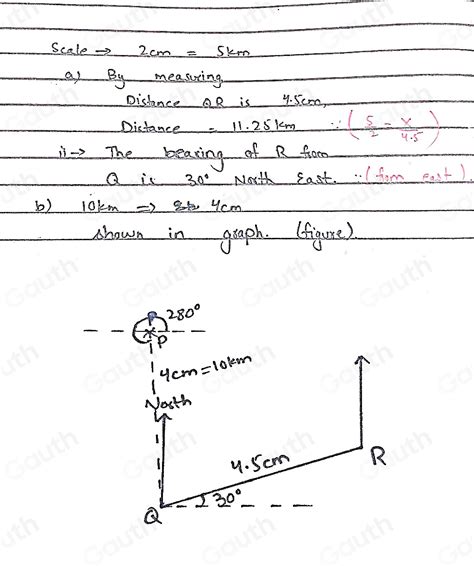 Scale → 2cm = 5km
a) By measuring
Distance QR is 4.5cm,
Distance = 11.25km ∵ (5/2 = x/4.5)
ii → The bearing of R from
Q is 30° North East. ∵ (from east).
b) 10km ⇒ 4cm
shown in graph. (figure)
280°
P
4cm=10km
North
4.5cm
R
30°
Q
Gauth